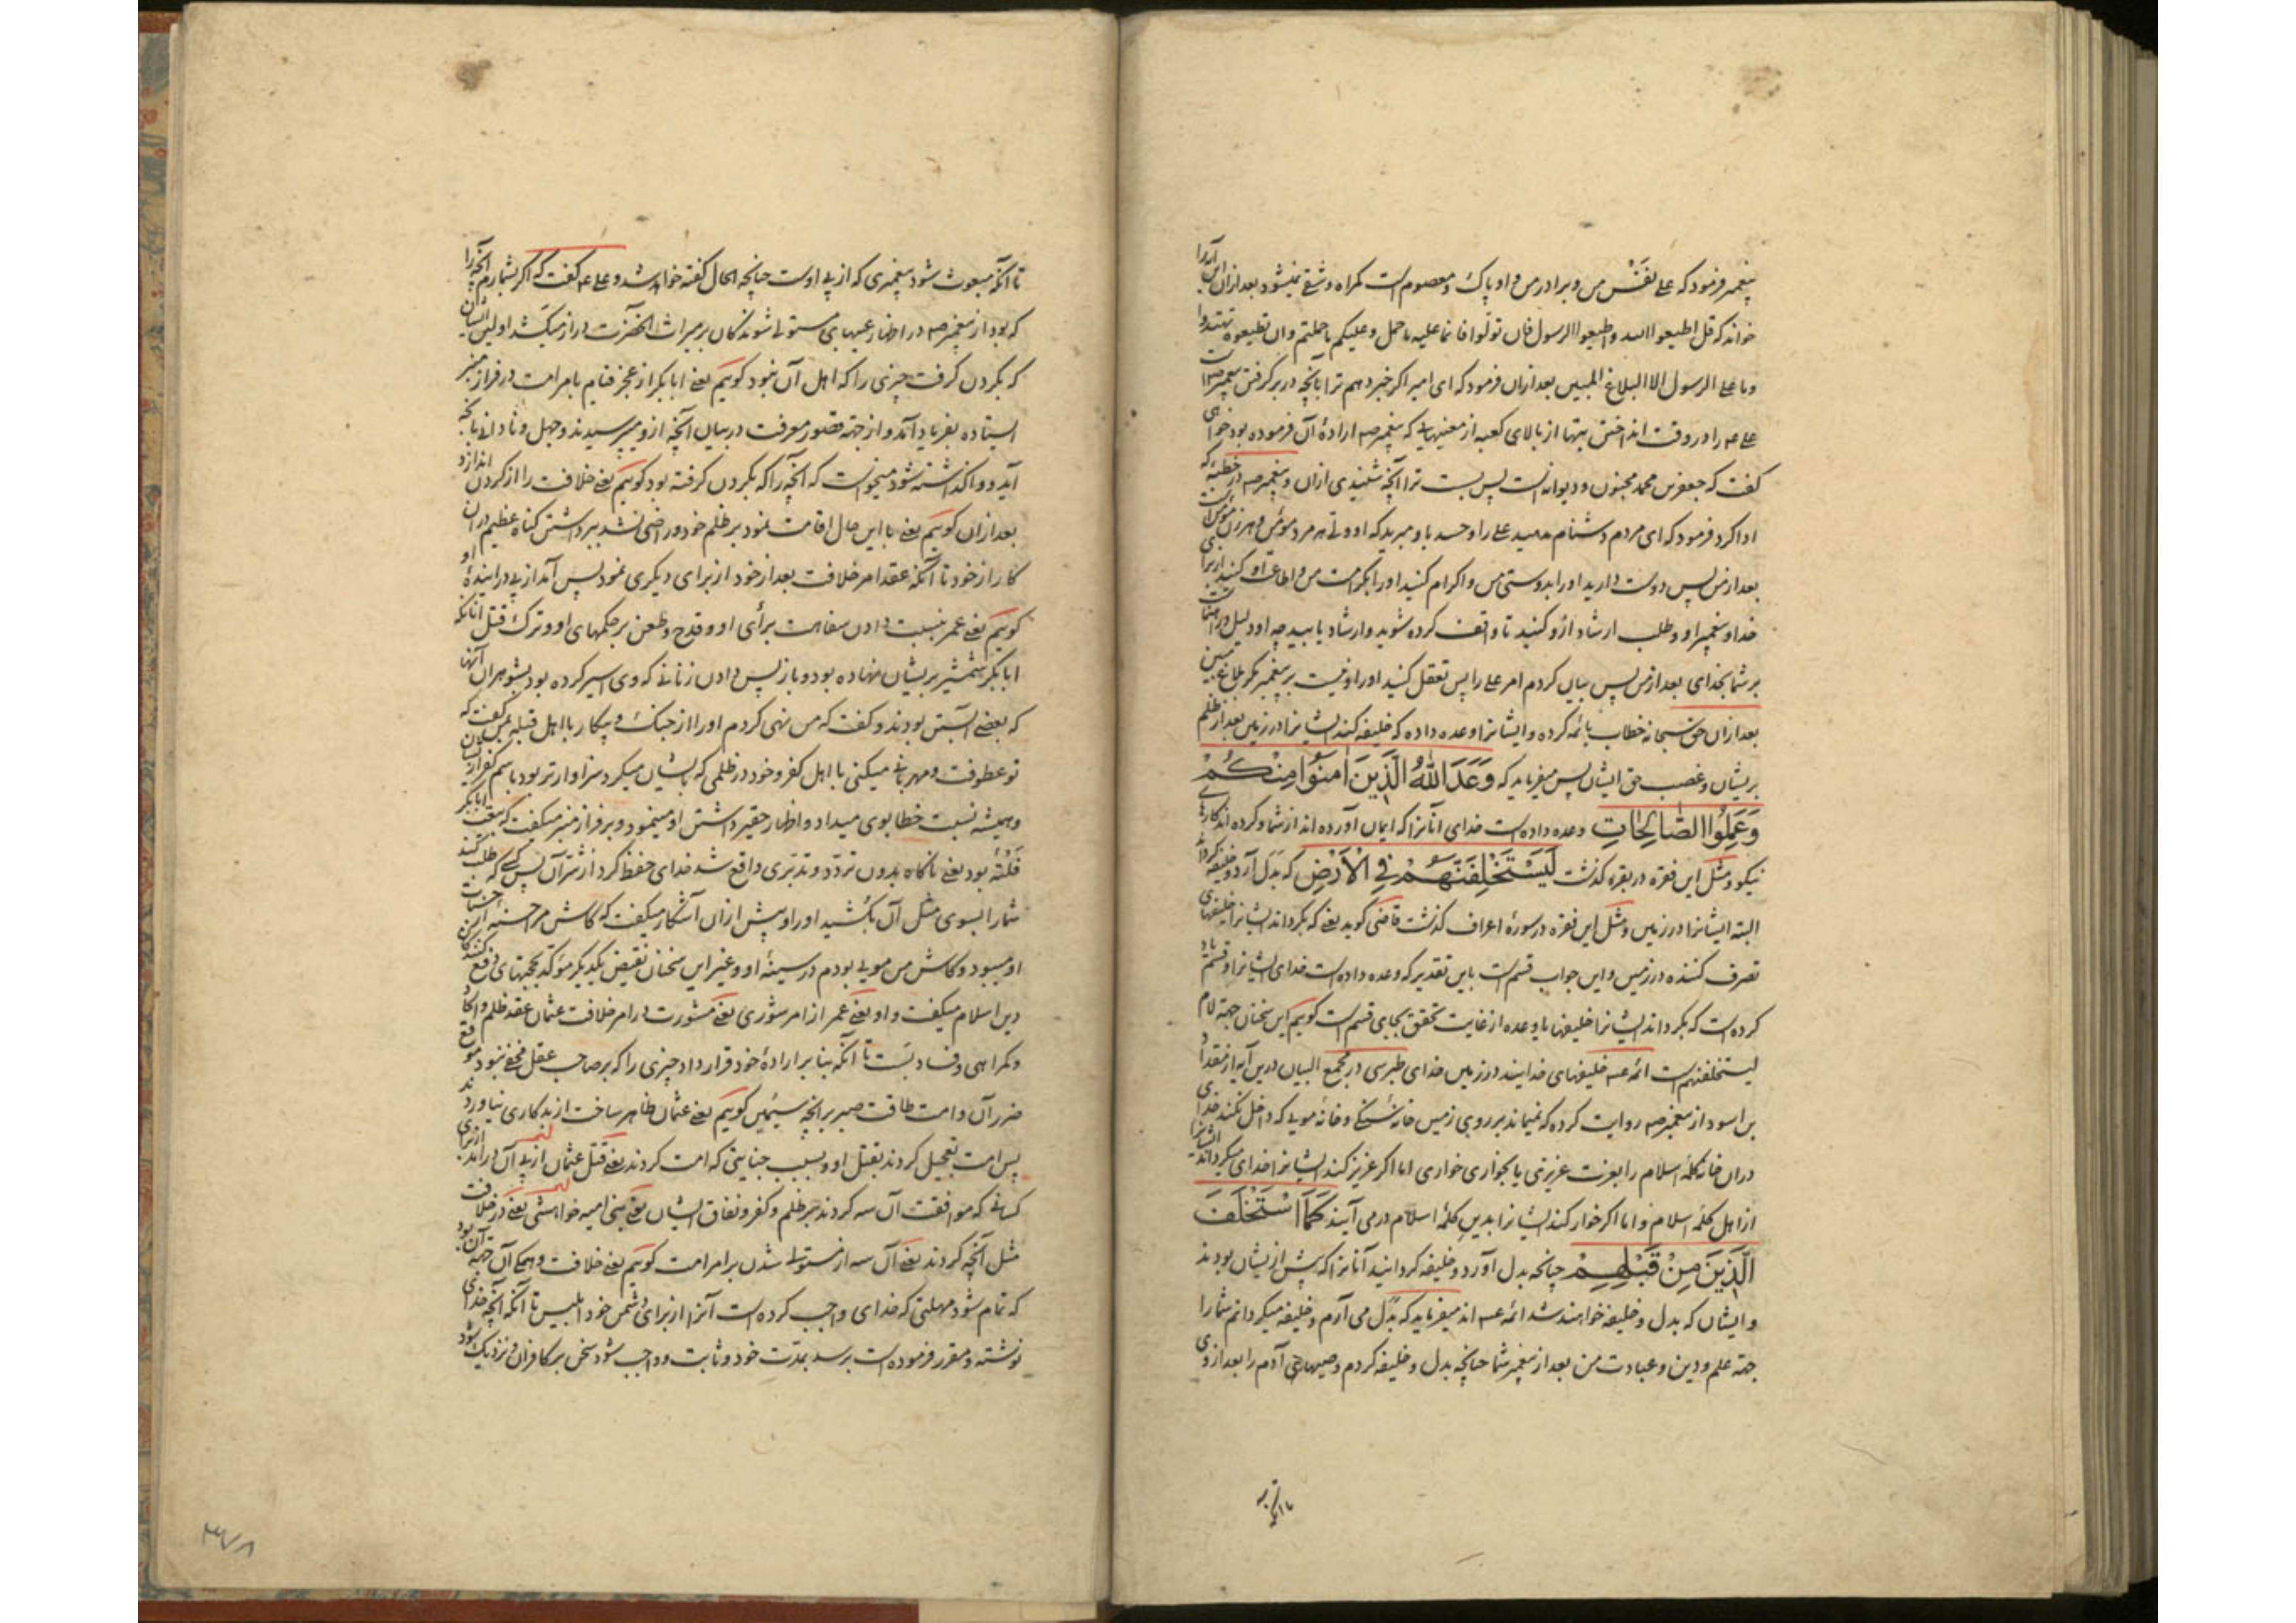 پیغمبر فرمود که علی نفس من و برادر من و او پاک و معصوم است گمراه و شقی نمیشود بعد ازان این آیه را
خواند که قل اطیعوا الله و اطیعوا الرسول فان تولوا فانما علیه ما حمل و علیکم ما حملتم و ان تطیعوه تهتدوا
و ما علی الرسول الا البلاغ المبین بعد ازان فرمود که ای امیر اکر خبر دهم ترا بآنچه در بر کرفتن پیغمبر صم است
علی عه را در وقت انداختن بتها از بالای کعبه از معنیهایی که پیغمبر صم ارادهٔ آن فرموده بود خواهی
کفت که جعفر بن محمد مجنون و دیوانه است پس بست ترا آنچه شنیدی ازان و پیغمبر صم در خطبهٔ که
ادا کرد فرمود که ای مردم دشنام مدهید علی را و حسد باو مبرید که او ولی هر مرد مؤمن و هر زن مؤمن است
بعد از من پس دوست دارید او را بدوستی من و اکرام کنید او را بکرامت من و اطاعت او کنید از برای
خدا و پیغمبر او و طلب ارشاد ازو کنید تا واقف کرده شوید و ارشاد یابید چه او دلیل و راهنماست
بر شما بخدای بعد از من پس بیان کردم امر علی را پس تعقل کنید او را و نیست بر پیغمبر مکر بلاغ مبین
بعد ازان حق سبحانه خطاب بائمه کرده و ایشانرا وعده داده که خلیفه کند ایشانرا در زمین بعد از ظلم
بریشان و غصب حق ایشان پس میفرماید که وَعَدَ اللّٰهُ الَّذِينَ اٰمَنُوا مِنْكُمْ
وَعَمِلُوا الصَّالِحَاتِ وعده داده است خدای آنانرا که ایمان آورده اند از شما و کرده اند کارهای
نیکو و مثل این فقره در بقره کذشت لَيَسْتَخْلِفَنَّهُمْ فِي الْاَرْضِ که بدل آرد و خلیفه کرداند
البته ایشانرا در زمین و مثل این فقره در سورهٔ اعراف کذشت قاضی کوید یعنی که بکرداند ایشانرا خلیفهای
تصرف کننده در زمین و این جواب قسم است باین تقدیر که وعده داده است خدای ایشانرا و قسم یاد
کرده است که بکرداند ایشانرا خلیفها یا وعده از غایت تحقق بجای قسم است کوییم این سخنان جهة لام
لیستخلفنهم است ائمه عسه خلیفهای خدایند در زمین خدای طبرسی در مجمع البیان درین آیه از مقداد
بن اسود از پیغمبر صم روایت کرده که نمیماند بر روی زمین خانهٔ سنکی و خانهٔ مویی که داخل نکند خدای
دران خانه کلمهٔ اسلام را بعزت عزیزی یا بخواری خواری اما اکر عزیز کند ایشانرا خدای میکرداند ایشانرا
از اهل کلمهٔ اسلام و اما اکر خوار کند ایشانرا بدین کلمهٔ اسلام در می آیند كَمَا اسْتَخْلَفَ
الَّذِينَ مِنْ قَبْلِهِمْ چنانچه بدل آورد و خلیفه کردانید آنانرا که پیش ازیشان بودند
و ایشان که بدل و خلیفه خواهند شد ائمه عسه اند میفرماید که بدل می آرم و خلیفه میکردانم شما را
جهة علم و دین و عبادت من بعد از پیغمبر شما چنانچه بدل و خلیفه کردم وصیهای آدم را بعد از وی
تا آنکه
تا آنکه مبعوث شود پیغمبری که از پی اوست چنانچه الحال کفته خواهد شد و علی عه کفت که اکر بشمارم آنچه را
که بود از پیغمبر صم در اظهار عیبهای مستولی شوندکان بر میراث آنحضرت دراز میکشد اولین ایشان
که بکردن کرفت چیزی را که اهل آن نبود کوییم یعنی ابابکر از عجز قیام بامر امت در فراز منبر
ایستاده بفریاد آمد و از جهة قصور معرفت در بیان آنچه ازو میپرسیدند و جهل و نادانی بآنچه
آید و واکذاشته شود میخواست که آنچه را که بکردن کرفته بود کوییم یعنی خلافت را از کردن اندازد
بعد ازان کوییم یعنی با این حال اقامت نمود بر ظلم خود و راضی نشد ببرداشتن کناه عظیم دران
کار از خود تا آنکه عقد امر خلافت بعد از خود از برای دیکری نمود پس آمد از پی درآیندهٔ او
کوییم یعنی عمر بنسبت دادن سفاهت برأی او و قدح و طعن بر حکمهای او و ترک قتل آنانکه
ابابکر شمشیر بریشان نهاده بود و باز پس دادن زنانی که وی اسیر کرده بود بشوهران آنها
که بعضی آبستن بودند و کفت که من نهی کردم او را از جنک و پیکار با اهل قبله بمن کفت که
تو عطوفت و مهربانی میکنی با اهل کفر و خود در ظلمی که بایشان میکرد سزاوارتر بود باسم کفر از ایشان
و همیشه نسبت خطا بوی میداد و اظهار حقیر داشتن او مینمود و بر فراز منبر میکفت که بیعت ابابکر
فلته بود یعنی ناکاه بدون تردد و تدبری واقع شد خدای حفظ کرد از شر آن پس کسی که طلب کند
شما را بسوی مثل آن بکشید او را و پیش ازان آشکار میکفت که کاش من حسنه از حسنات
او میبود و کاش من مویی بودم در سینهٔ او و غیر این سخنان نقیض یکدیکر مؤکد بحجتهای دفع کنندکان
دین اسلام میکفت و او یعنی عمر از امر شوری یعنی مشورت در امر خلافت عثمان عقد ظلم و الحاد
و کمراهی و فساد بست تا آنکه بنا بر ارادهٔ خود قرار داد چیزی را که بر صاحب عقل مخفی نبود موقع
ضرر آن و امت طاقت صبر بر آنچه سیئمین کوییم یعنی عثمان ظاهر ساخت از بدکاری نیاوردند
پس امت تعجیل کردند بقتل او و بسبب جنایتی که امت کردند یعنی قتل عثمان از پی آن درآمدند از برای
کسانی که موافقت آن سه کردند بر ظلم و کفر و نفاق ایشان یعنی بنی امیه خواهشی یعنی در خلافت
مثل آنچه کردند یعنی آن سه از مستولی شدن بر امر امت کوییم یعنی خلافت و همکی آن جهة آن بود
که تمام شود مهلتی که خدای واجب کرده است آنرا از برای دشمن خود ابلیس تا آنکه آنچه خدای
نوشته و مقرر فرموده است برسد بمدت خود و ثابت و واجب شود سخن بر کافران و نزدیک شود